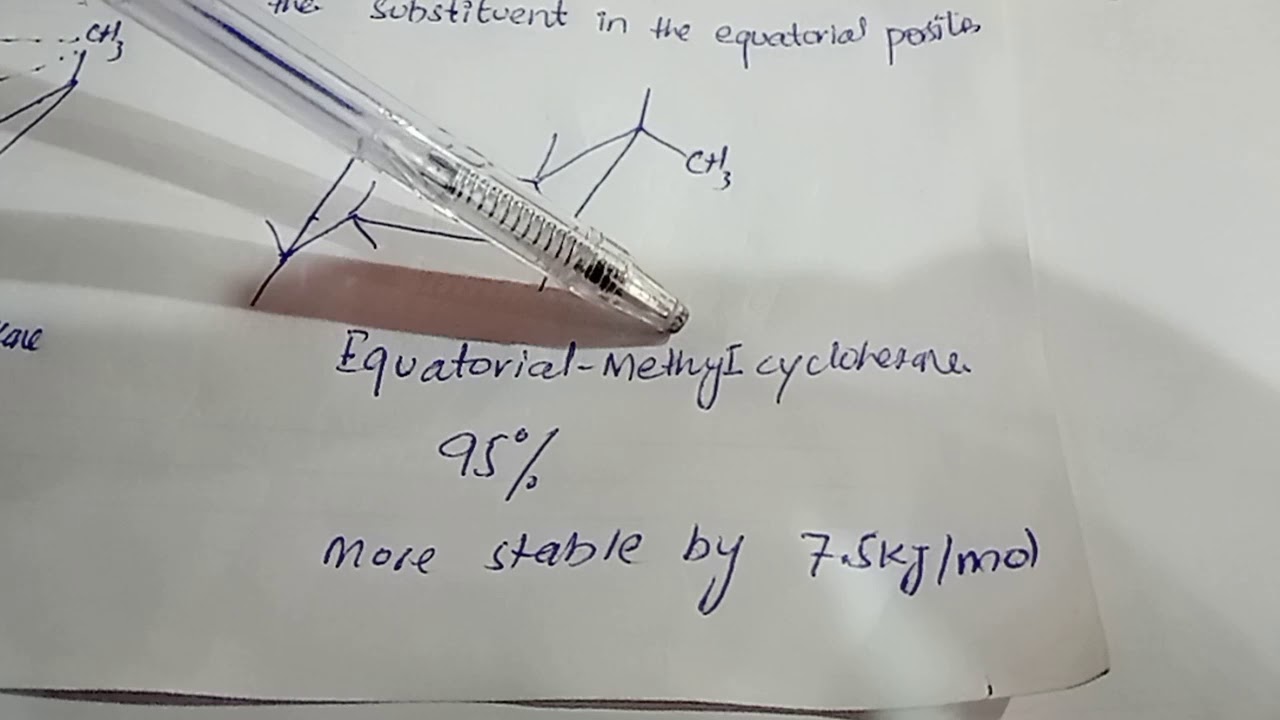 the substituent in the equatorial
CH3
CH3
Equatorial-Methyl cyclohexane
95%
More stable by 7.5KJ/mol